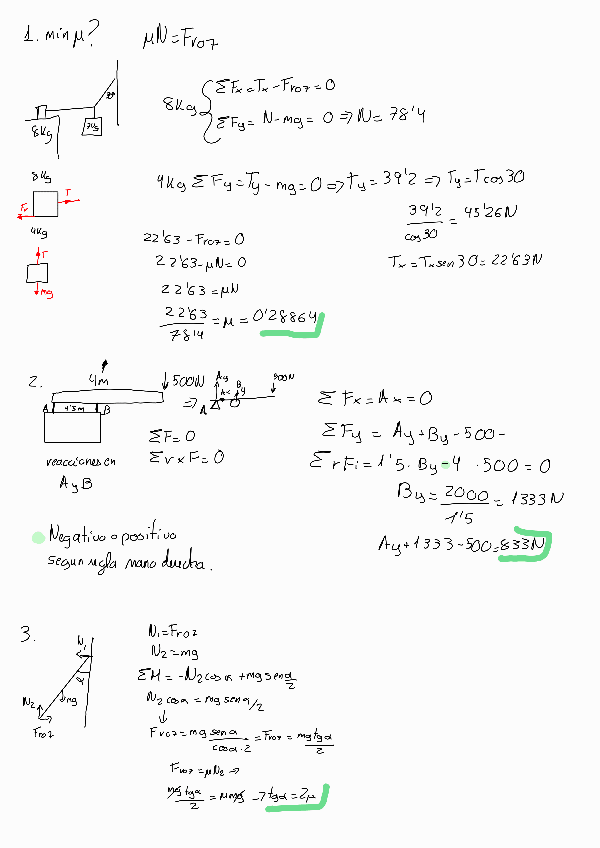 1. min μ? μN = Froz
8Kg ΣFx = Tx - Froz = 0
ΣFy = N - mg = 0 ⇒ N = 78'4
30
8Kg
8Kg
Fr T
4Kg ΣFy = Ty - mg = 0 ⇒ Ty = 39'2 ⇒ Ty = T cos30
39'2/cos30 = 45'26N
Tx = Tx sen30 = 22'63N
4Kg
T
mg
22'63 - Froz = 0
22'63 - μN = 0
22'63 = μN
22'63/78'4 = μ = 0'28864
2. 4m
500N ⇒
A 1'5m B
Ay Ax By 500N
A
reacciones en
A y B
ΣF = 0
Σr x F = 0
ΣFx = Ax = 0
ΣFy = Ay + By - 500 =
ΣrFi = 1'5 · By - 4 · 500 = 0
By = 2000/1'5 = 1333N
Ay + 1333 - 500 = 833N
Negativo o positivo
segun regla mano derecha.
3.
N1
α
N2 mg
Froz
N1 = Froz
N2 = mg
ΣM = -N2 cos α + mg sen α/2
N2 cos α = mg sen α/2
↓
Froz = mg sen α/cos α · 2 = Froz = mg tg α/2
Froz = μN2 ⇒
mg tg α/2 = μmg → tg α = 2μ